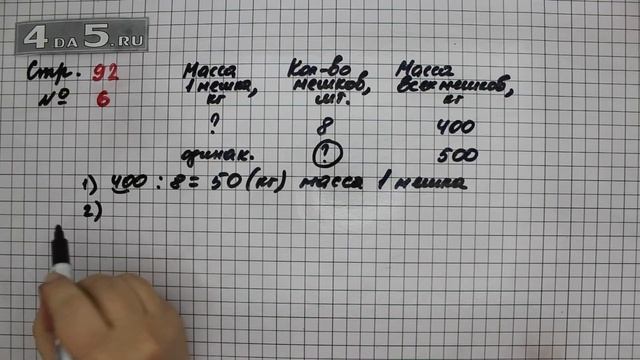 4DA5.RU
Стр. 92
№ 6
Масса 1 мешка, кг
Кол-во мешков, шт.
Масса всех мешков, кг
? 8 400
одинак. ? 500
1) 400 : 8 = 50 (кг) масса 1 мешка
2)